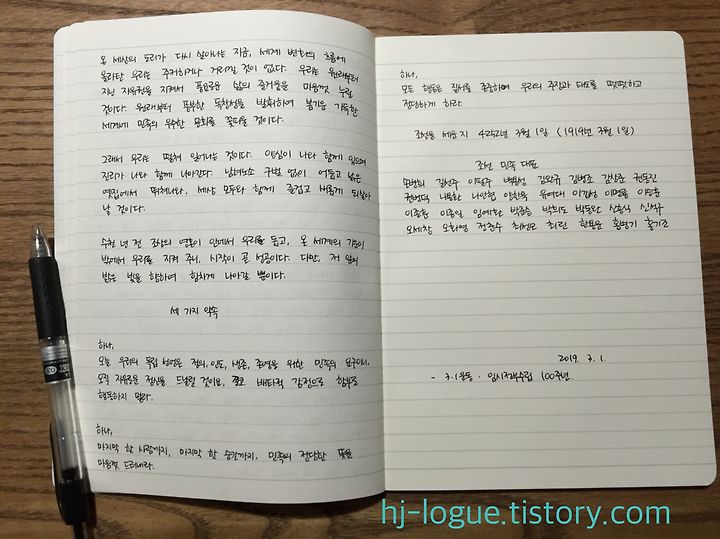 온 세상의 도리가 다시 살아나는 지금, 세계 변화의 흐름에
올라탄 우리는 주저하거나 거리낄 것이 없다. 우리는 원래부터
지닌 자유권을 지켜서 풍요로운 삶의 즐거움을 마음껏 누릴
것이다. 원래부터 풍부한 독창성을 발휘하여 봄기운 가득한
세계에 민족의 우수한 문화를 꽃피울 것이다.
그래서 우리는 떨쳐 일어나는 것이다. 양심이 나와 함께 있으며
진리가 나와 함께 나아간다. 남녀노소 구별 없이 어둡고 낡은
옛집에서 뛰쳐나와, 세상 모두와 함께 즐겁고 새롭게 되살아
날 것이다.
수천 년 전 조상의 영혼이 안에서 우리를 돕고, 온 세계의 기운이
밖에서 우리를 지켜 주니, 시작이 곧 성공이다. 다만, 저 앞의
밝은 빛을 향하여 힘차게 나아갈 뿐이다.
세 가지 약속
하나,
오늘 우리의 독립 선언은 정의, 인도, 생존, 존영을 위한 민족의 요구이니,
오직 자유로운 정신을 드날릴 것이요, 결코 배타적 감정으로 함부로
행동하지 말라.
하나,
마지막 한 사람까지, 마지막 한 순간까지, 민족의 정당한 뜻을
마음껏 드러내라.
하나,
모든 행동은 질서를 존중하여 우리의 주장과 태도를 떳떳하고
정당하게 하라.
조선을 세운 지 4252년 3월 1일 (1919년 3월 1일)
조선 민족 대표
손병희 길선주 이필주 백용성 김완규 김병조 김창준 권동진
권병덕 나용환 나인협 양전백 양한묵 유여대 이갑성 이명룡 이승훈
이종훈 이종일 임예환 박준승 박희도 박동완 신홍식 신석구
오세창 오화영 정춘수 최성모 최린 한용운 홍병기 홍기조
2019. 3. 1.
- 3.1운동 · 임시정부수립 100주년.
hj-logue.tistory.com